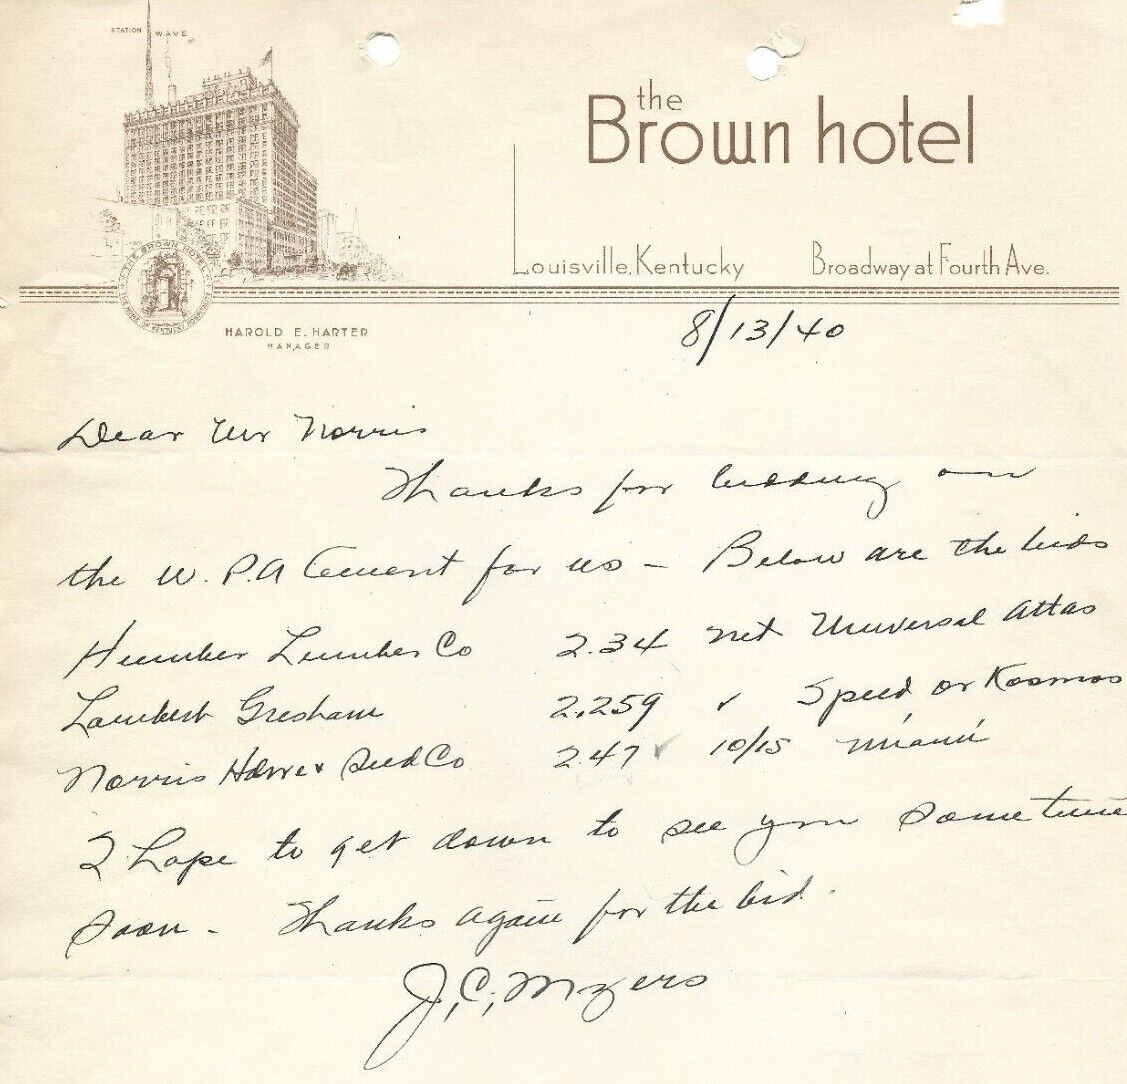 STATION WAVE
the
Brown hotel
Louisville, Kentucky Broadway at Fourth Ave.
THE BROWN HOTEL
HOME OF KENTUCKY HOSPITALITY
HAROLD E. HARTER
MANAGER
8/13/40
Dear Mr Norris
Thanks for bidding on
the W. P. A Cement for us - Below are the bids
Humber Lumber Co 2.34 net Universal Atlas
Lambert Gresham 2.259 " Speed or Kosmos
Norris Hdwe & Seed Co 2.47 10/15 Miami
I hope to get down to see you sometime
soon - Thanks again for the bid.
J. C. Myers